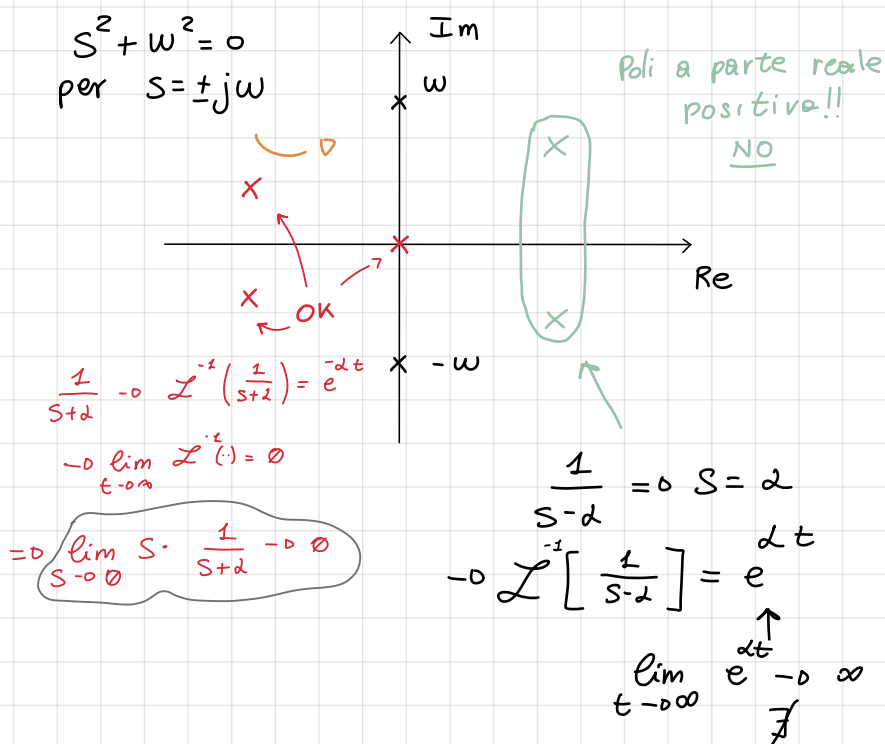 S² + ω² = 0
per S = ± jω
Im
ω
Poli a parte reale
positiva!!
NO
OK
Re
-ω
1/(S+α) → ℒ⁻¹(1/(S+α)) = e^(-αt)
→ lim t→∞ ℒ⁻¹(··) = 0
⇒ lim S→0 S · 1/(S+α) → 0
1/(S-α) ⇒ S = α
→ ℒ⁻¹[1/(S-α)] = e^(αt)
lim t→∞ e^(αt) → ∞
∄